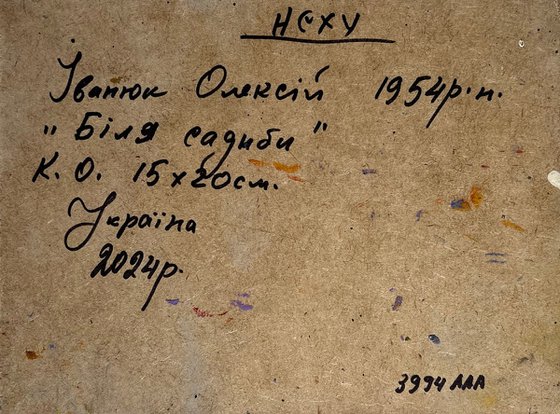 НСХУ
Іванюк Олексій 1954р.н.
"Біля садиби"
К.О. 15х20см.
Україна
2024р.
3994ААА